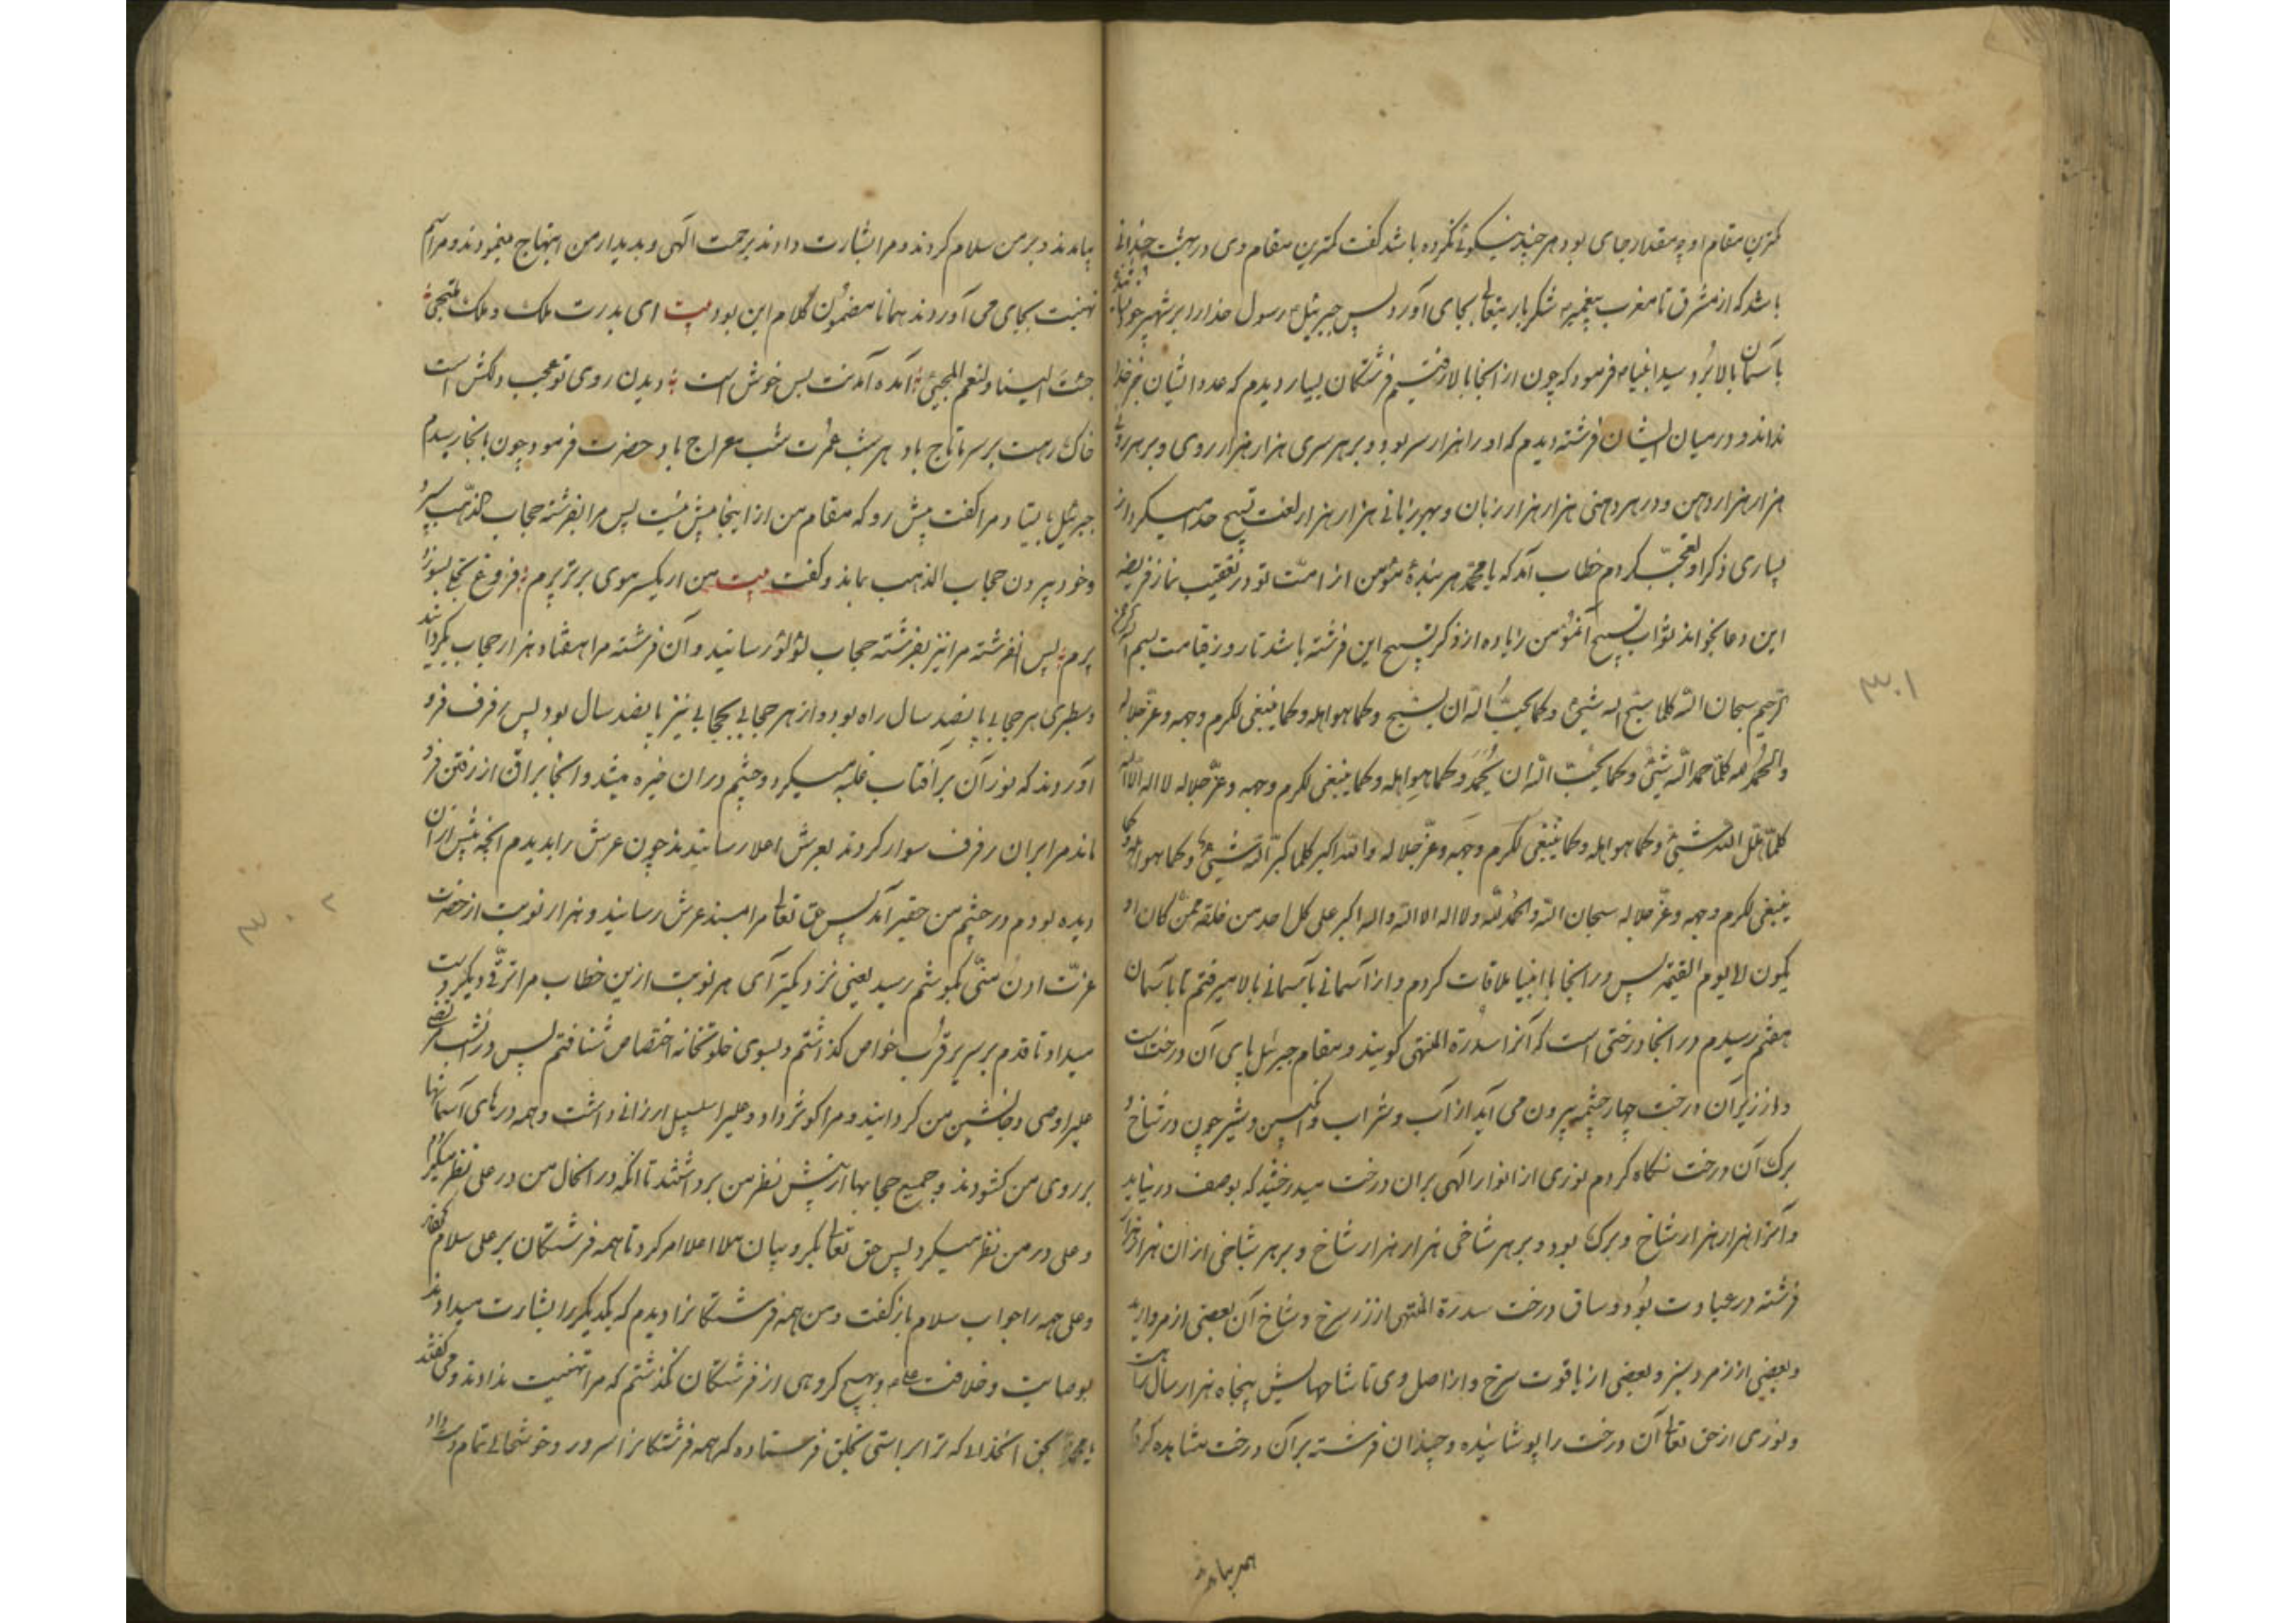 کمترین مقام او چه مقدار جای بود هر چند نیکوئی نکرده باشد گفت کمترین مقام وی در بهشت چندانی
باشد که از مشرق تا مغرب پیغمبر شکر باریتعالی بجای آورد پس جبرئیل رسول خدا را بر شهپر خود
بآسمان بالا برد سید انبیا فرمود که چون از آنجا بالا رفتیم فرشتگان بسیار دیدم که عدد ایشان جز خدا
نداند و در میان ایشان فرشته دیدم که او را هزار سر بود و بر هر سری هزار هزار روی و بر هر روی
هزار هزار دهن و در هر دهنی هزار هزار زبان و بهر زبانی هزار هزار لغت تسبیح خدا میکرد از
بسیاری ذکر او تعجب کردم خطاب آمد که یا محمد هر بندهٔ مؤمن از امت تو در تعقیب نماز فریضه
این دعا بخواند ثواب تسبیح آنمؤمن زیاده از ذکر تسبیح این فرشته باشد تا روز قیامت بسم الله الرحمن
الرحیم سبحان الله کلما سبح الله شیٔ و کما یحب الله ان یسبح و کما هو اهله و کما ینبغی لکرم وجهه و عز جلاله
و الحمد لله کلما حمد الله شیٔ و کما یحب الله ان یحمد و کما هو اهله و کما ینبغی لکرم وجهه و عز جلاله لا اله الا الله
کلما هلل الله شیٔ و کما هو اهله و کما ینبغی لکرم وجهه و عز جلاله والله اکبر کلما کبر الله شیٔ و کما هو اهله و کما
ینبغی لکرم وجهه و عز جلاله سبحان الله و الحمد لله و لا اله الا الله والله اکبر علی کل احد من خلقه ممن کان او
یکون الی یوم القیمه پس در آنجا با انبیا ملاقات کردم و از آسمانی بآسمانی بالا میرفتم تا بآسمان
هفتم رسیدم در آنجا درختی است که آنرا سدرة المنتهی گویند و مقام جبرئیل پای آن درخت است
و از زیر آن درخت چهار چشمه بیرون می آید از آب و شراب و انگبین و شیر چون در شاخ و
برک آن درخت نگاه کردم نوری از انوار الهی بران درخت میدرخشید که بوصف در نیاید
و آنرا هزار هزار شاخ و برک بود و بر هر شاخی هزار هزار شاخ و بر هر شاخی ازان هزار هزار
فرشته در عبادت بود و ساق درخت سدرة المنتهی از زر سرخ و شاخ آن بعضی از مروارید
و بعضی از زمرد سبز و بعضی از یاقوت سرخ و از اصل وی تا شاخهایش پنجاه هزار سال راه است
و نوری از حق تعالی آن درخت را پوشانیده و چندان فرشته بر آن درخت مشاهده کردم
همه بیامدند
۳۰۱
بیامدند و بر من سلام کردند و مرا بشارت دادند برحمت الهی و بدیدار من ابتهاج مینمودند و مراسم
تهنیت بجای می آوردند همانا مضمون کلام این بود بیت ای بدرت ملک و ملک ملتجی
جئت الینا و لنعم المجیٔ آمده آمدنت بس خوش است دیدن روی تو عجب دلکش است
خاک رهت بر سر ما تاج باد هر شب عمرت شب معراج باد حضرت فرمود چون بانجا رسیدم
جبرئیل بیستاد و مرا گفت پیش رو که مقام من از اینجا پیش نیست پس مرا بفرشته حجاب الذهب سپرد
و خود بیرون حجاب الذهب بماند و گفت بیت من ار یکسر موی برتر پرم فروغ تجلی بسوزد
پرم پس انفرشته مرا نیز بفرشته حجاب لؤلؤ رسانید و آن فرشته مرا هفتاد هزار حجاب بگردانید
و سطبری هر حجابی پانصد سال راه بود و از هر حجابی بحجابی نیز پانصد سال بود پس رفرف فرو
آوردند که نور آن بر آفتاب غلبه میکرد و چشم دران خیره میشد و آنجا براق از رفتن فرو
ماند مرا بران رفرف سوار کردند بعرش اعلا رسانیدند چون عرش را بدیدم آنچه پیش ازان
دیده بودم در چشم من حقیر آمد پس حق تعالی مرا بمسند عرش رسانید و هزار نوبت از حضرت
عزت ادن منی بگوشم رسید یعنی نزدیکتر آی هر نوبت ازین خطاب مرا ترقی دیگر دست
میداد تا قدم بر سریر قرب خواص گذاشتم و بسوی خلوتخانه اختصاص شتافتم پس در آنشب مرتضی
علیرا وصی و جانشین من گردانید و مرا کوثر داد و علیرا سلسبیل ارزانی داشت و همه درهای آسمانها
بر روی من گشودند و جمیع حجابها از پیش نظر من برداشتند تا آنکه در آنحال من در علی نظر میکردم
و علی در من نظر میکرد پس حق تعالی کبر و بیان ملا اعلا امر کرد تا همه فرشتگان بر علی سلام گفتند
و علی همه را جواب سلام باز گفت و من همه فرشتگانرا دیدم که یکدیگر را بشارت میدادند
بوصایت و خلافت علی و بهیچ گروهی از فرشتگان نگذشتم که مرا تهنیت ندادند و می گفتند
یا محمد بحق آنخدائی که ترا براستی بخلق فرستاده که همه فرشتگانرا سرور و خوشحالی تمام دست داد
۳۰۲